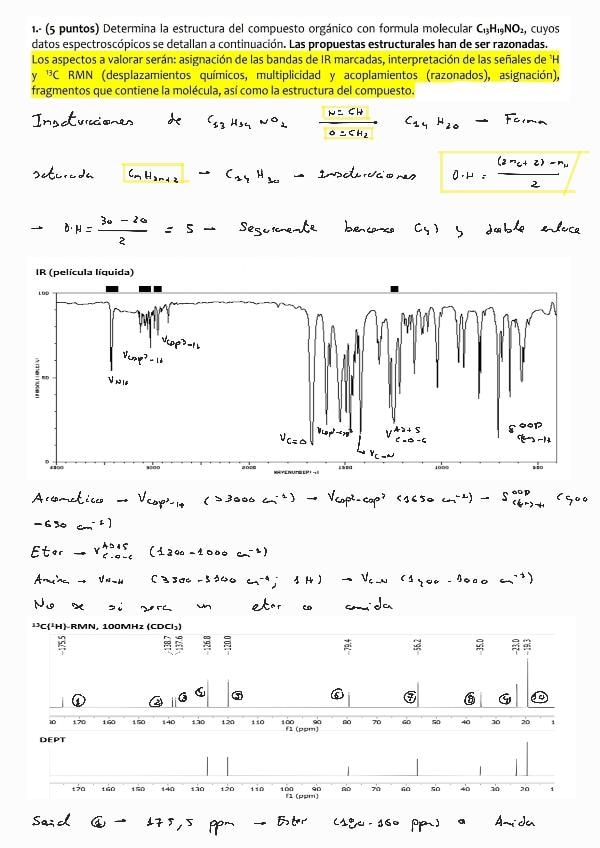 1.- (5 puntos) Determina la estructura del compuesto orgánico con formula molecular C₁₃H₁₉NO₂, cuyos
datos espectroscópicos se detallan a continuación. Las propuestas estructurales han de ser razonadas.
Los aspectos a valorar serán: asignación de las bandas de IR marcadas, interpretación de las señales de ¹H
y ¹³C RMN (desplazamientos químicos, multiplicidad y acoplamientos (razonados), asignación),
fragmentos que contiene la molécula, así como la estructura del compuesto.
Insaturaciones de C₁₃H₁₉NO₂ N=CH O=CH₂ C₁₄H₂₀ → Forma
saturada CnH2n+2 → C₁₄H₃₀ → Insaturaciones D.H = (2nc+2)-nH / 2
→ D.H = 30-20 / 2 = 5 → Seguramente benceno (4) y doble enlace
IR (película líquida)
100
50
0
4000 3000 2000 1500 1000 500
WAVENUMBER
νN-H
νCsp²-H
νCsp³-H
νC=O
νCsp²-Csp²
νC-N
ν As+S C-O-C
δ OOP C(sp²)-H
Aromatico → νCsp²-H (>3000 cm⁻¹) → νCsp²-Csp² (1650 cm⁻¹) → δ OOP C(sp²)-H (900
-650 cm⁻¹)
Eter → ν As+S C-O-C (1200-1000 cm⁻¹)
Amina → νN-H (3500-3100 cm⁻¹; 1H) → νC-N (1400-1000 cm⁻¹)
No se si sera un eter o amida
¹³C{¹H}-RMN, 100MHz (CDCl₃)
175.5 138.7 137.6 126.8 120.0 79.4 56.2 35.0 23.0 19.3
1 2 3 4 5 6 7 8 9 10
80 170 160 150 140 130 120 110 100 90 80 70 60 50 40 30 20 1
f1 (ppm)
DEPT
170 160 150 140 130 120 110 100 90 80 70 60 50 40 30 20 1
f1 (ppm)
Señal 1 → 175,5 ppm → Ester (190-160 ppm) o Amida